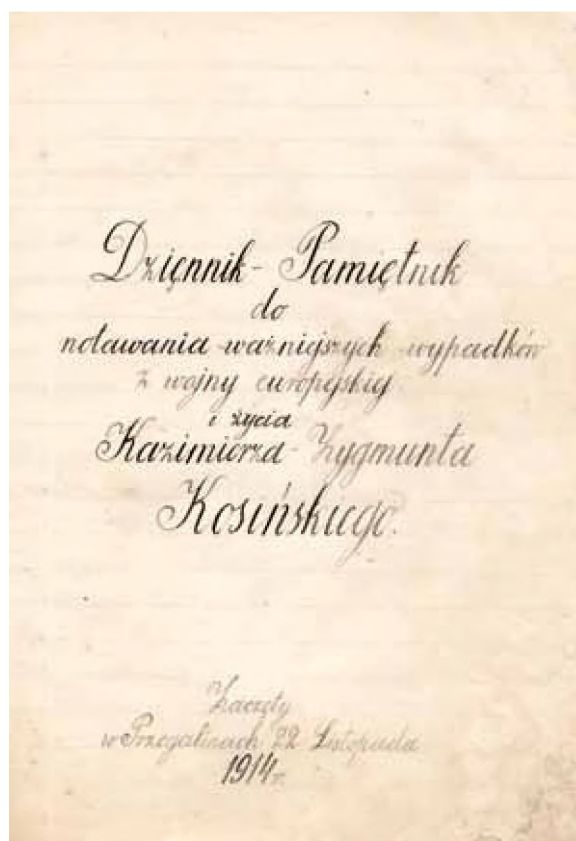 Dziennik - Pamiętnik
do
notowania ważniejszych wypadków
z wojny europejskiej
i życia
Kazimierza - Zygmunta
Kosińskiego.
Zaczęty
w Przegalinach 22 Listopada
1914 r.